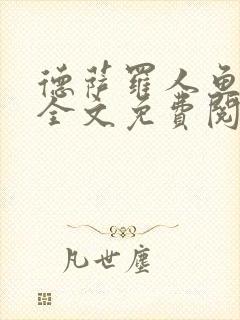 德萨罗人鱼
全文免费阅
凡世尘